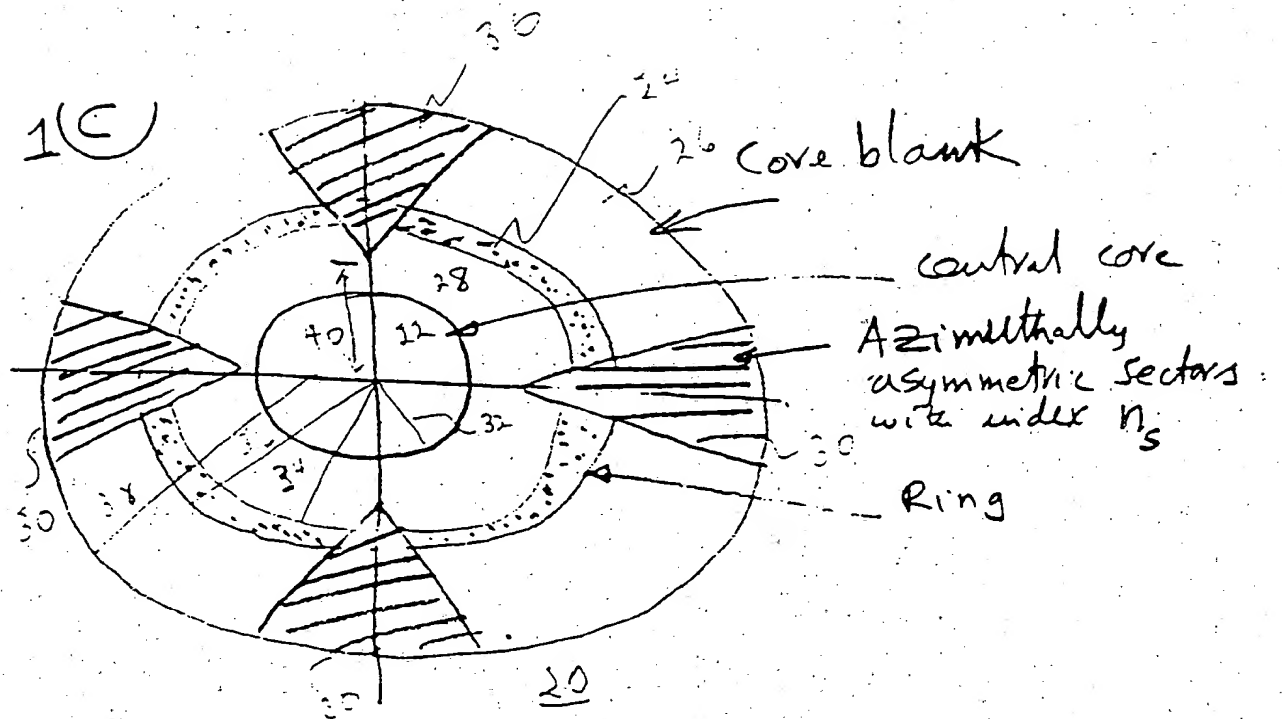 30
1(C)
26 Core blank
central core
28
40
12
Azimuthally
asymmetric sectors
with index ns
32
34
30
38
30
Ring
20
30